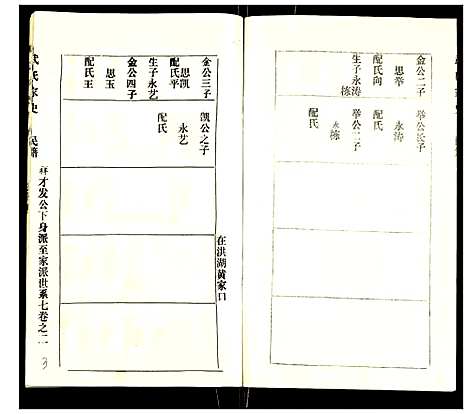 金公二子
思举
配氏向
生子永涛
栋
举公长子
永涛
配氏
举公二子
永栋
配氏
金公三子
思凯
配氏平
生子永艺
金公四子
思玉
配氏王
凯公之子
永艺
配氏
在洪湖黄家口
武氏家史
民籍
祥才发公下身派至家派世系七卷之二
3